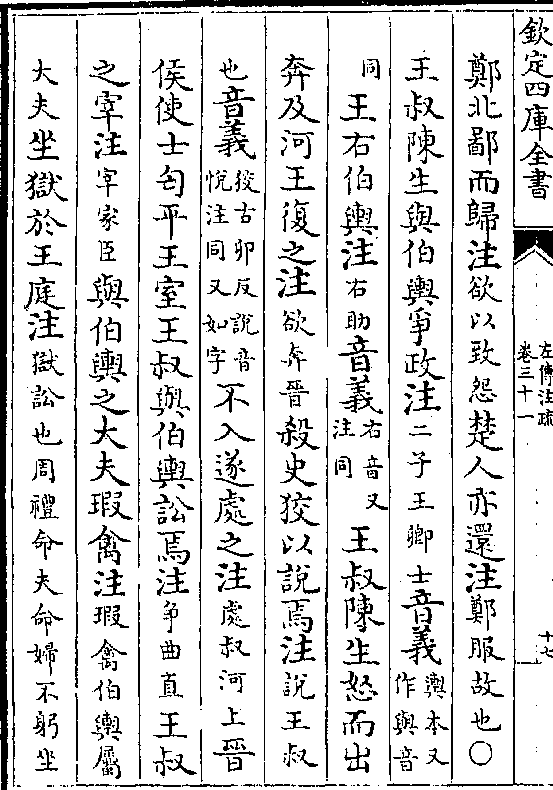 欽定四庫全書
左傳注疏
卷三十一
十七
鄭北鄙而歸注欲以致怨楚人亦還注鄭服故也〇
王叔陳生與伯輿爭政注二子王卿士音義輿本又
作與音
同王右伯輿注右助音義右音又
注同王叔陳生怒而出
奔及河王復之注欲奔晉殺史狡以說焉注說王叔
也音義狡古卯反說音
悅注同又如字不入遂處之注處叔河上晉
侯使士匄平王室王叔與伯輿訟焉注爭曲直王叔
之宰注宰家臣與伯輿之大夫瑕禽注瑕禽伯輿屬
大夫坐獄於王庭注獄訟也周禮命夫命婦不躬坐